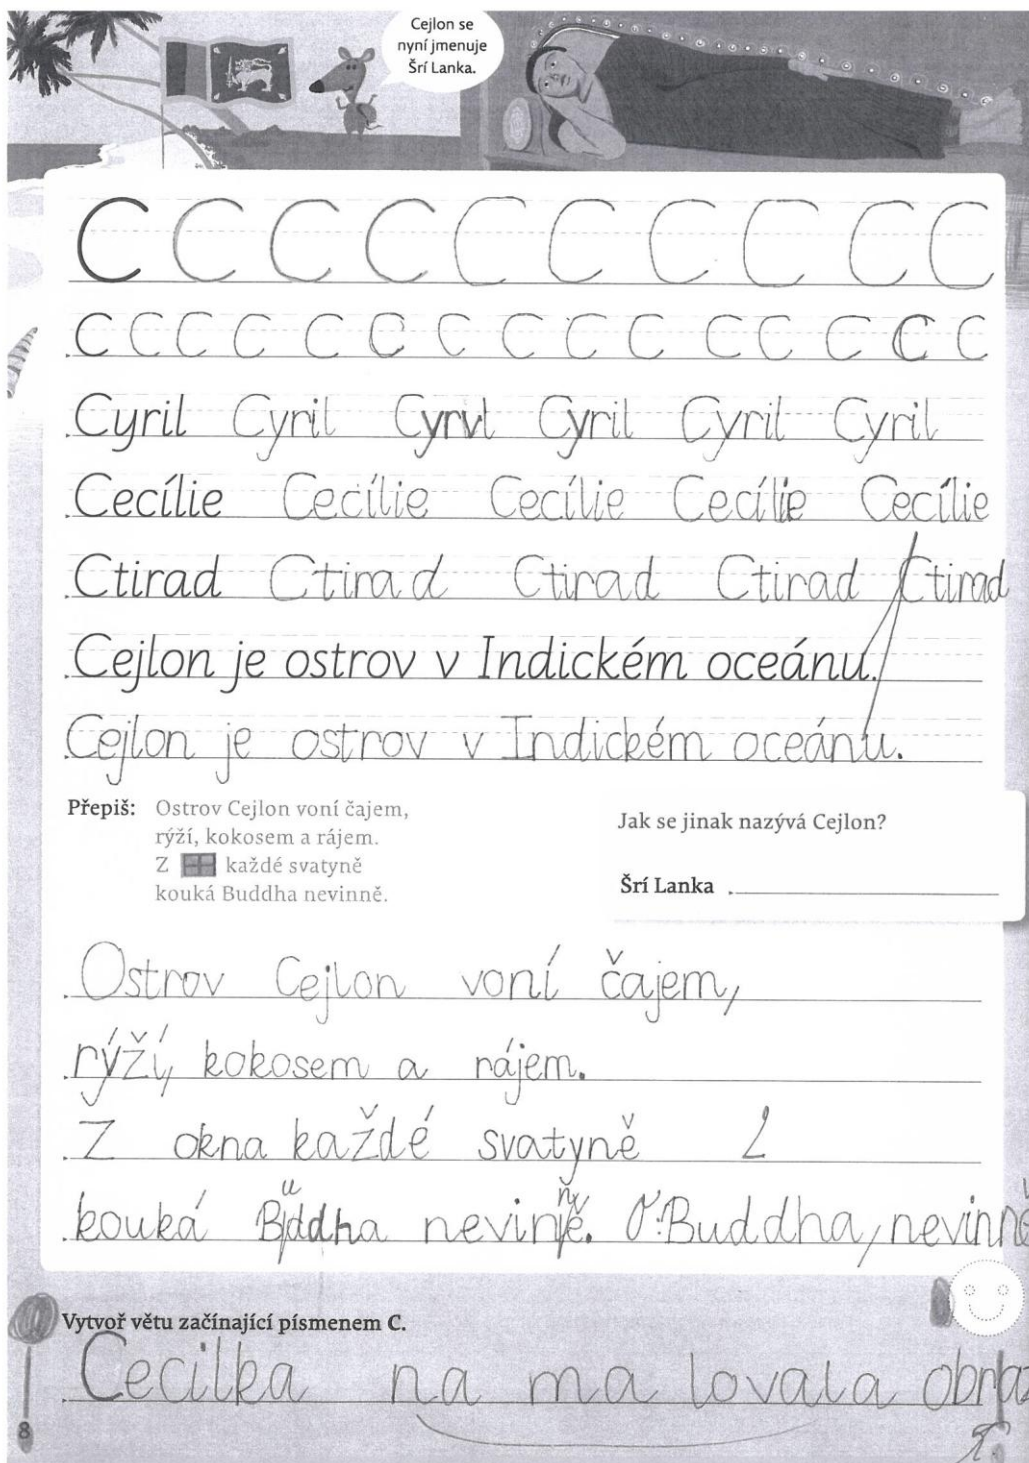 Cejlon se
nyní jmenuje
Šrí Lanka.
C C C C C C C C C C
C C C C C C C C C C C C C C C
Cyril Cyril Cyrvl Cyril Cyril Cyril
Cecílie Cecílie Cecílie Cecílie Cecílie
Ctirad Ctirad Ctirad Ctirad Ctirad
Cejlon je ostrov v Indickém oceánu.
Cejlon je ostrov v Indickém oceánu.
Přepiš: Ostrov Cejlon voní čajem,
rýží, kokosem a rájem.
Z každé svatyně
kouká Buddha nevinně.
Jak se jinak nazývá Cejlon?
Šrí Lanka
Ostrov Cejlon voní čajem,
rýží, kokosem a rájem.
Z okna každé svatyně Z
kouká Buddha nevinně. O: Buddha, nevinně
Vytvoř větu začínající písmenem C.
Cecilka na ma lovala obraz
8